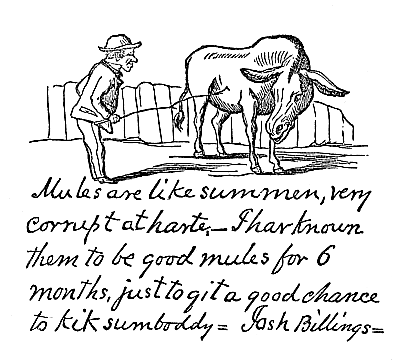 Mules are like summen, very
corrupt at harte,_ I hav known
them to be good mules for 6
months, just to git a good chance
to kik sumboddy = Josh Billings =